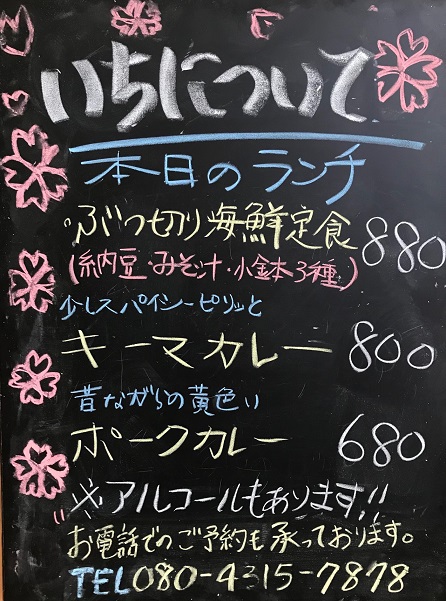 いちについて
本日のランチ
ぶつ切り海鮮定食 880
(納豆・みそ汁・小鉢3種)
少しスパイシーピリッと
キーマカレー 800
昔ながらの黄色い
ポークカレー 680
※アルコールもあります!!
お電話でのご予約も承っております。
TEL080-4315-7878